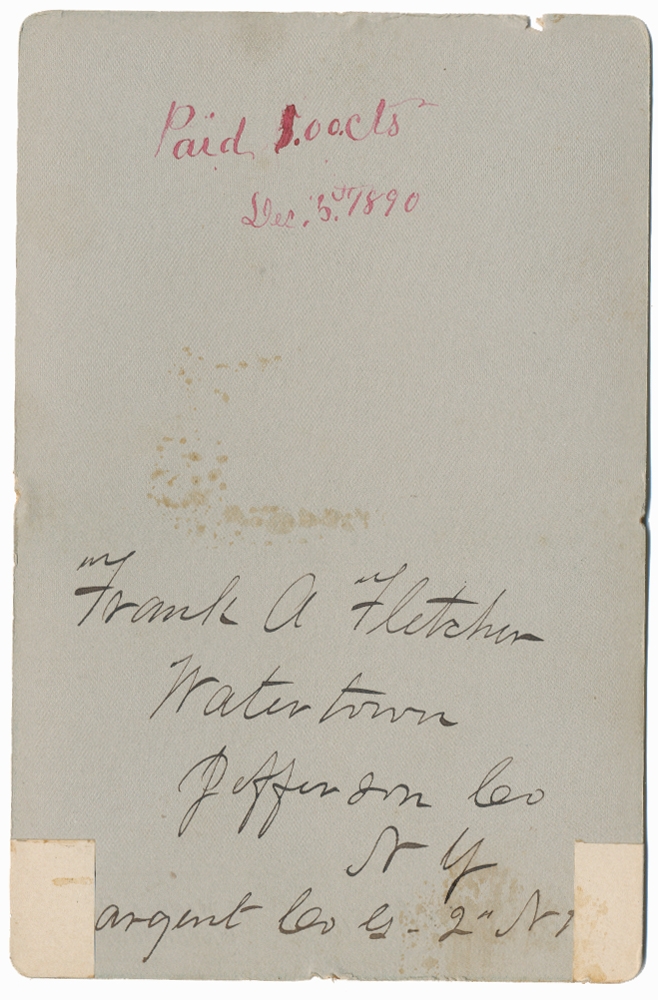 Paid 1.00cts
Dec. 5th, 1890
Frank A Fletcher
Watertown
Jefferson Co
N Y
argent Co G - 2" N Y